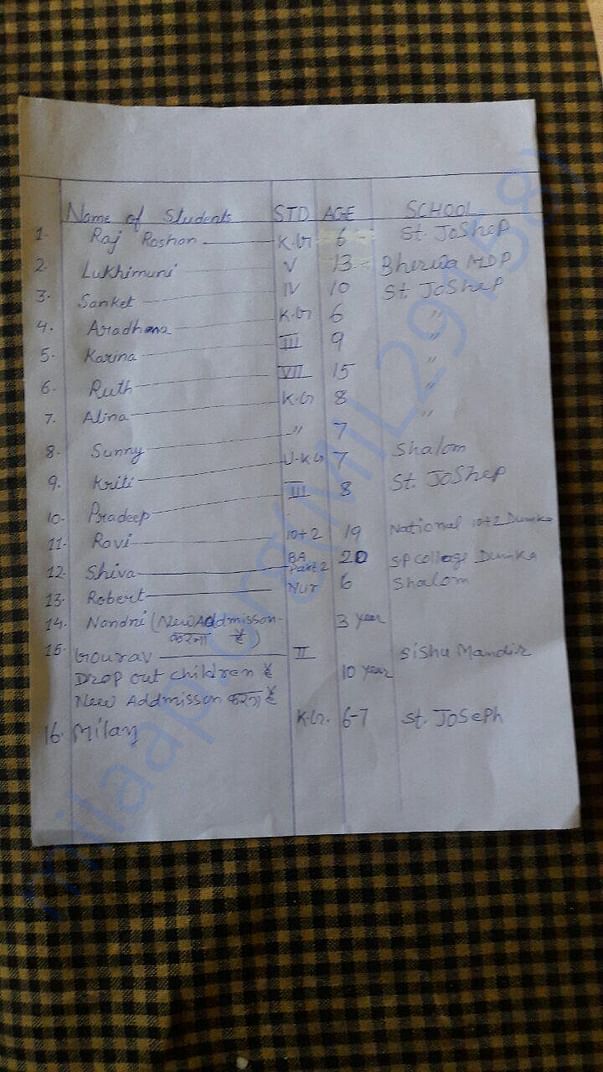 Name of Students STD AGE SCHOOL
1. Raj Roshan K.G 6 St. JoShep
2. Lukhimuni V 13 Bherwa MDP
3. Sanket IV 10 St. JoShep
4. Aradhana K.G 6 "
5. Karina III 9 "
6. Ruth VII 15 "
7. Alina K.G 8 "
8. Sunny " 7
9. Kriti U.KG 7 Shalom
10. Pradeep III 8 St. JoShep
11. Ravi 10+2 19 National 10+2 Dumka
12. Shiva BA Part 2 20 SP College Dumka
13. Robert Nur 6 Shalom
14. Nandni (New Addmisson- 3 year
करना है)
15. Gourav II Sishu Mandir
Drop out children है 10 year
New Addmisson करना है
16. Milan K.G. 6-7 St. JOSePh
milaap.org(MIL291581)